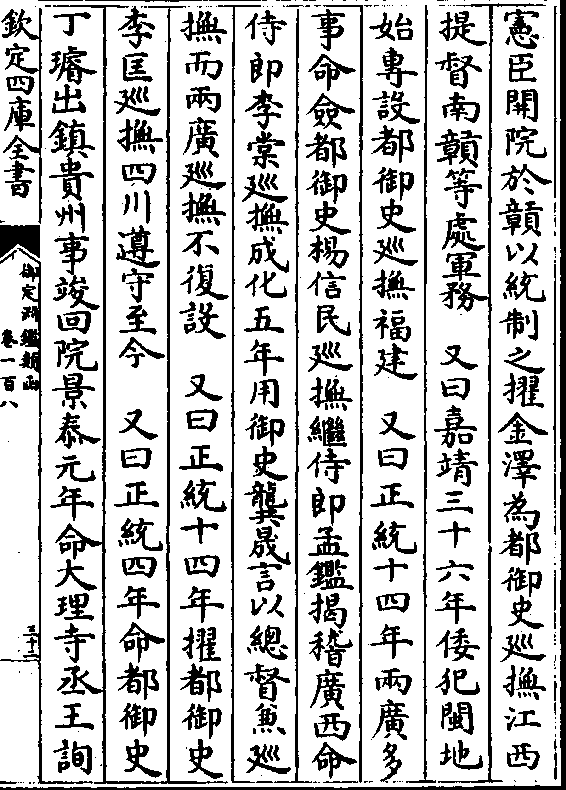 憲臣開院於贛以統制之擢金澤為都御史廵撫江西
提督南贛等處軍務　又曰嘉靖三十六年倭犯閩地
始專設都御史廵撫福建　又曰正統十四年兩廣多
事命僉都御史楊信民廵撫繼侍郎孟鑑揭稽廣西命
侍郎李棠廵撫成化五年用御史龔晟言以總督兼廵
撫而兩廣廵撫不復設　又曰正統十四年擢都御史
李匡廵撫四川遵守至今　又曰正統四年命都御史
丁璿出鎮貴州事竣回院景泰元年命大理寺丞王詢
欽定四庫全書
御定淵鑑類函
卷一百八
三十二